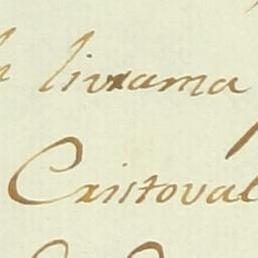 livrama
Cristoval